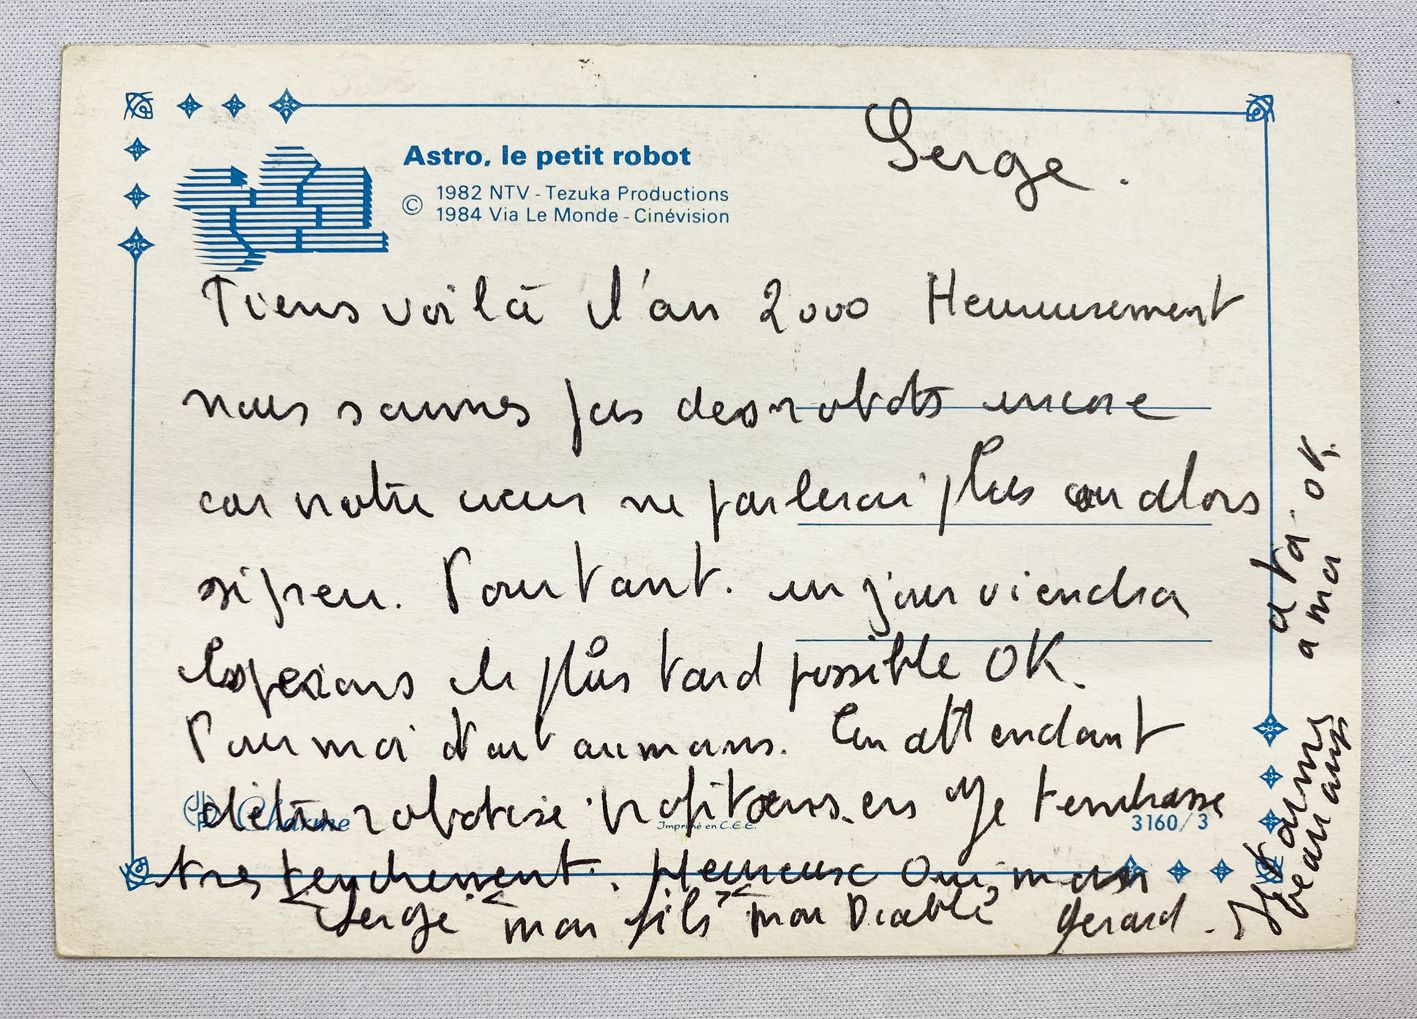 Astro, le petit robot
© 1982 NTV - Tezuka Productions
1984 Via Le Monde - Cinévision
Serge.
Tiens voilà l'an 2000 Heureusement
nous sommes pas des robots encore
car notre cœur ne parlerai plus ou alors
si peu. Pourtant. un jour viendra
Esperons le plus tard possible OK.
Pour moi d'autaumans. En attendant
d'être robotisé profitons.en Je t'embrasse
Charme
Imprimé en C.E.E.
3160/3
tres tendrement. Heureuse Oui, mon
"Serge" "mon fils" "mon Diable" Gerard.
beaucoup
a ta
a ma OK.